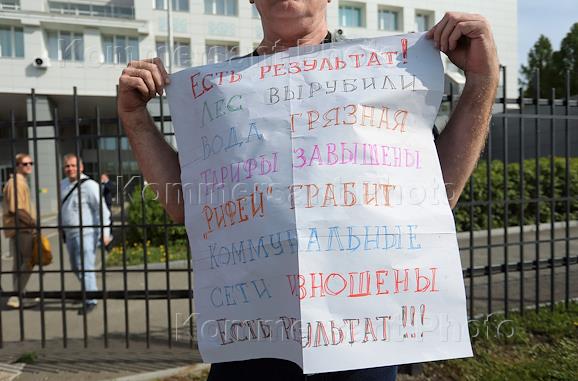 Есть результат!
Лес вырубили
Вода грязная
тарифы завышены
„Рифей" грабит
коммунальные
сети изношены
Есть результат!!!
Kommersant Photo
Kommersant Photo
Kommersant Photo
Kommersant Photo